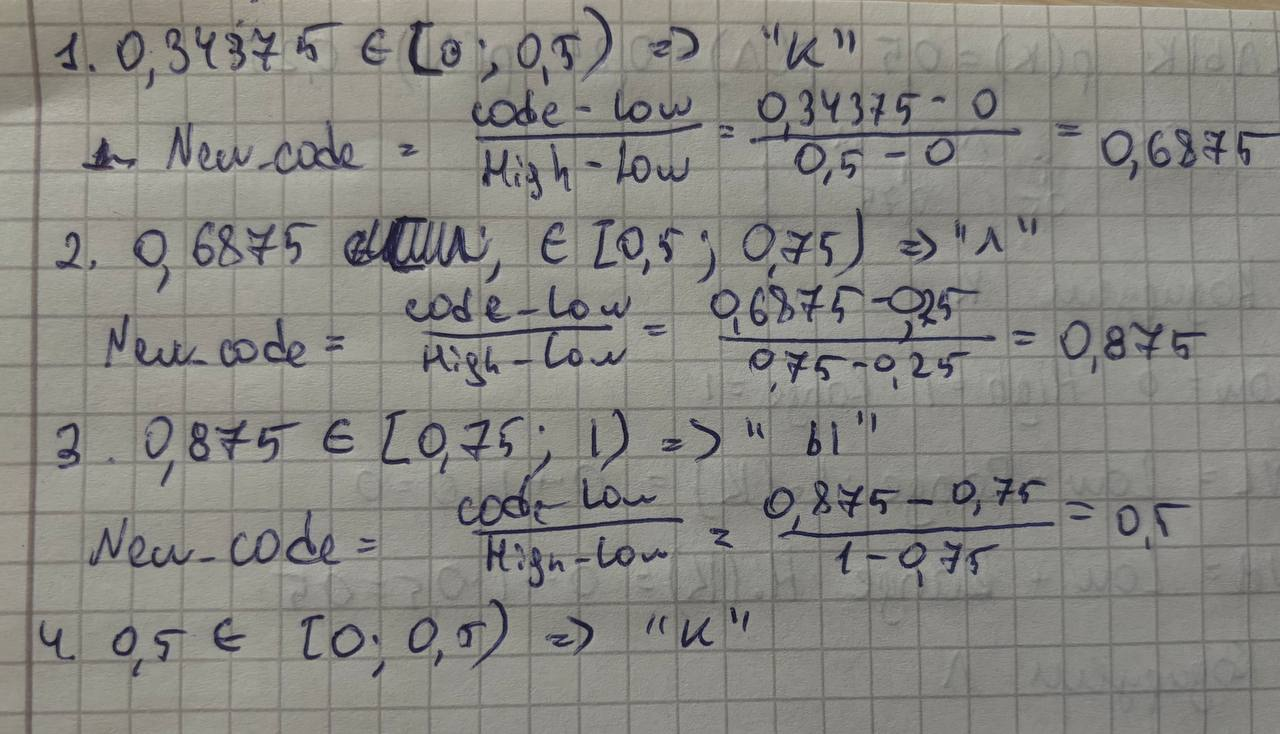 1. 0,34375 ∈ [0; 0,5) => "К"
New_code = (code-Low)/(High-Low) = (0,34375-0)/(0,5-0) = 0,6875
2. 0,6875 ∈ [0,5; 0,75) => "л"
New_code = (code-Low)/(High-Low) = (0,6875-0,25)/(0,75-0,25) = 0,875
3. 0,875 ∈ [0,75; 1) => "ы"
New_code = (code-Low)/(High-Low) = (0,875-0,75)/(1-0,75) = 0,5
4. 0,5 ∈ [0; 0,5) => "К"